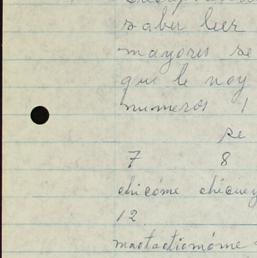 saber leer
mayores se
que le noy
numeros 1
pe
7 8
chicóme chicuey
12
maotactiomóme